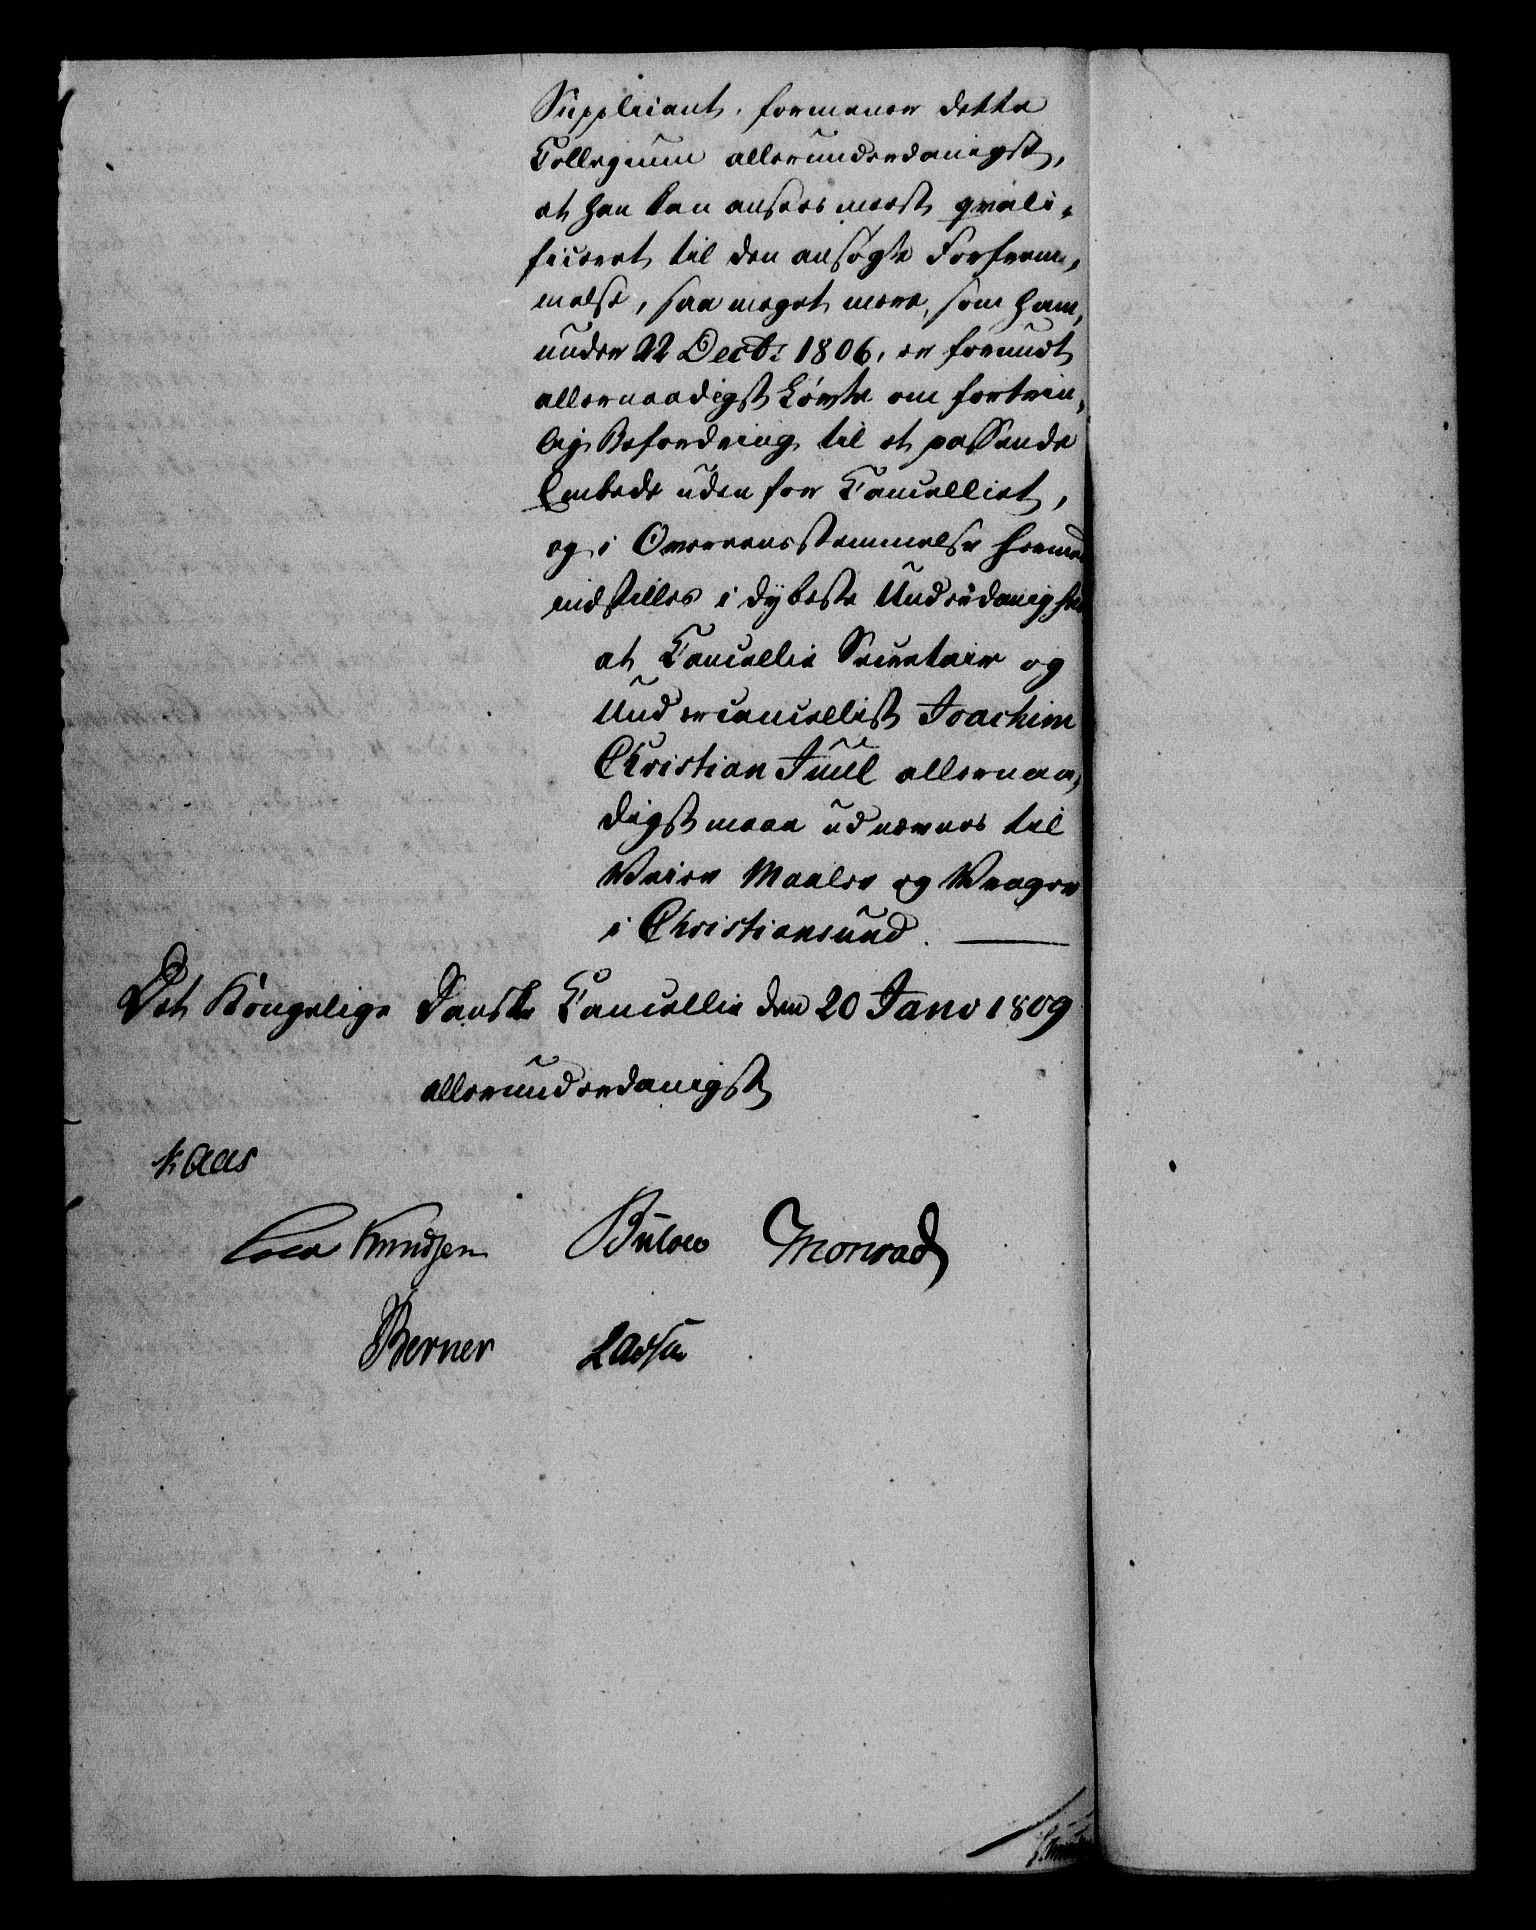 Suppliant, formener dette
Collegium allerunderdanigst,
at han kan ansees meest qvali-
ficeret til den ansøgte Forfrem-
melse, saa meget mere, som ham,
under 22 Decbr 1806, er forundt
allernaadigst Løvte om fortrin-
lig Befordring til et passende
Embede uden for Cancelliet,
og i Overeensstemmelse hermed
indstilles i dybeste Underdanighed
at Cancellie Secretair og
Undercancellist Joachim
Christian Juul allernaa-
digst maae udnævnes til
Veier Maaler og Vrager
i Christiansund.
Det Kongelige Danske Cancellie den 20 Janv 1809
allerunderdanigst
Kaas
Knudsen Bülow Monrad
Berner Lassen